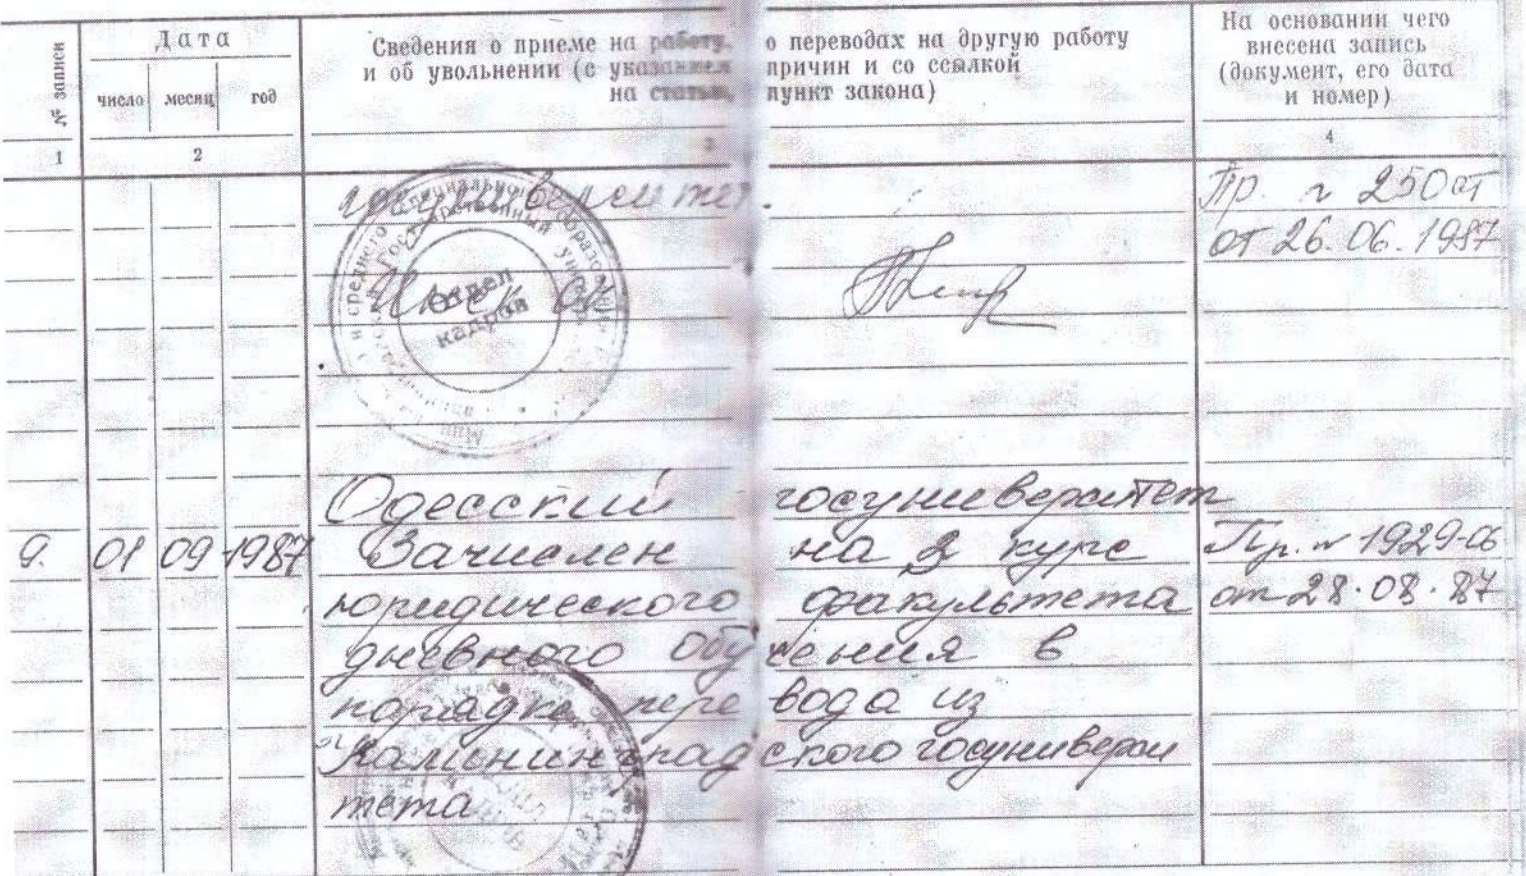 № записи
Дата
число месяц год
Сведения о приеме на работу, о переводах на другую работу
и об увольнении (с указанием причин и со ссылкой
на статью, пункт закона)
На основании чего
внесена запись
(документ, его дата
и номер)
1 2 3 4
госуниверситет.
Отдел
кадров
Пр. № 250 от
от 26.06.1987
Одесский госуниверситет
9. 01 09 1987 Зачислен на 2 курс
юридического факультета
дневного обучения в
порядке перевода из
Калининградского госуниверси
тета
Пр. № 1929-06
от 28.08.87